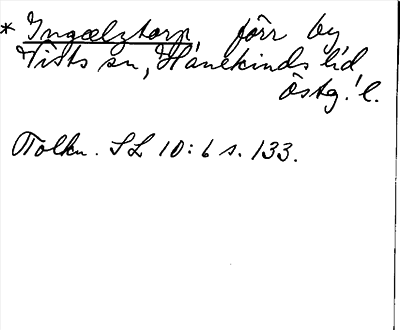 * Ingælztorp, förr by
Tists sn, Hanekinds hd,
Östg. l.
Tolkn. SL 10:6 s. 133.